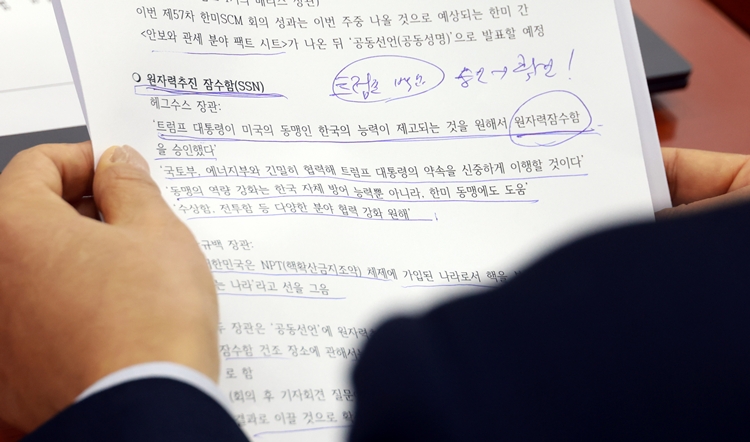 이번 제57차 한미SCM 회의 성과는 이번 주중 나올 것으로 예상되는 한미 간
<안보와 관세 분야 팩트 시트>가 나온 뒤 '공동선언(공동성명)'으로 발표할 예정
○ 원자력추진 잠수함(SSN)
트럼프
승인→확인!
헤그수스 장관:
'트럼프 대통령이 미국의 동맹인 한국의 능력이 제고되는 것을 원해서 원자력잠수함
을 승인했다'
'국토부, 에너지부와 긴밀히 협력해 트럼프 대통령의 약속을 신중하게 이행할 것이다'
'동맹의 역량 강화는 한국 자체 방어 능력뿐 아니라, 한미 동맹에도 도움'
'수상함, 전투함 등 다양한 분야 협력 강화 원해'
규백 장관:
한민국은 NPT(핵확산금지조약) 체제에 가입된 나라로서 핵을
는 나라'라고 선을 그음
두 장관은 '공동선언'에 원자력
잠수함 건조 장소에 관해서
로 함
(회의 후 기자회견 질문
결과로 이끌 것으로 확